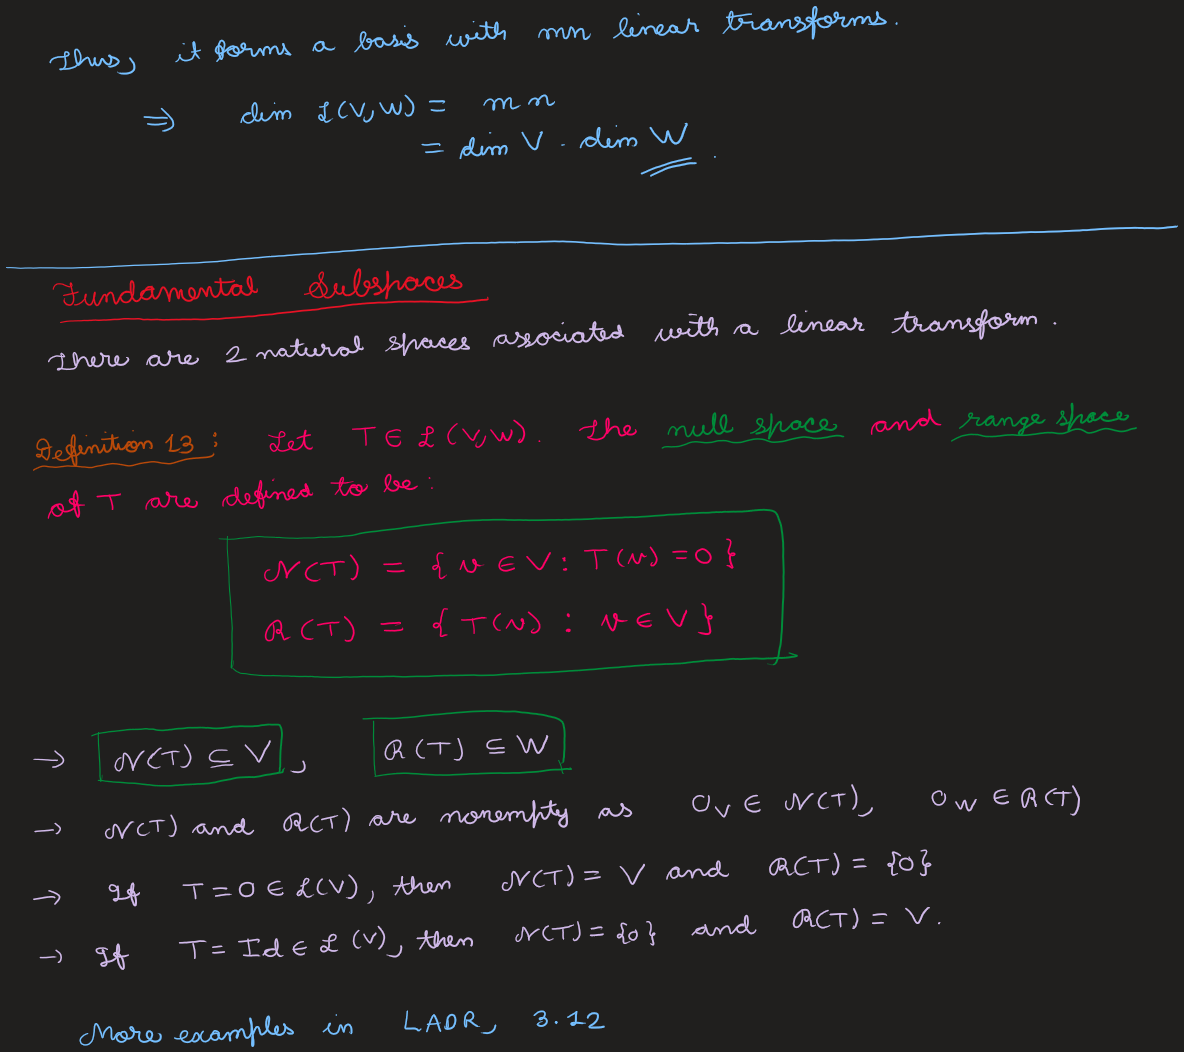 Thus, it forms a basis with mn linear transforms.
⇒ dim ℒ(V,W) = mn
= dim V · dim W.
Fundamental Subspaces
There are 2 natural spaces associated with a linear transform.
Definition 13: Let T ∈ ℒ(V,W). The null space and range space
of T are defined to be:
𝒩(T) = {v ∈ V : T(v) = 0}
ℛ(T) = {T(v) : v ∈ V}
→ 𝒩(T) ⊆ V, ℛ(T) ⊆ W
→ 𝒩(T) and ℛ(T) are nonempty as 0_V ∈ 𝒩(T), 0_W ∈ ℛ(T)
→ If T = 0 ∈ ℒ(V), then 𝒩(T) = V and ℛ(T) = {0}
→ If T = Id ∈ ℒ(V), then 𝒩(T) = {0} and ℛ(T) = V.
More examples in LADR, 3.12